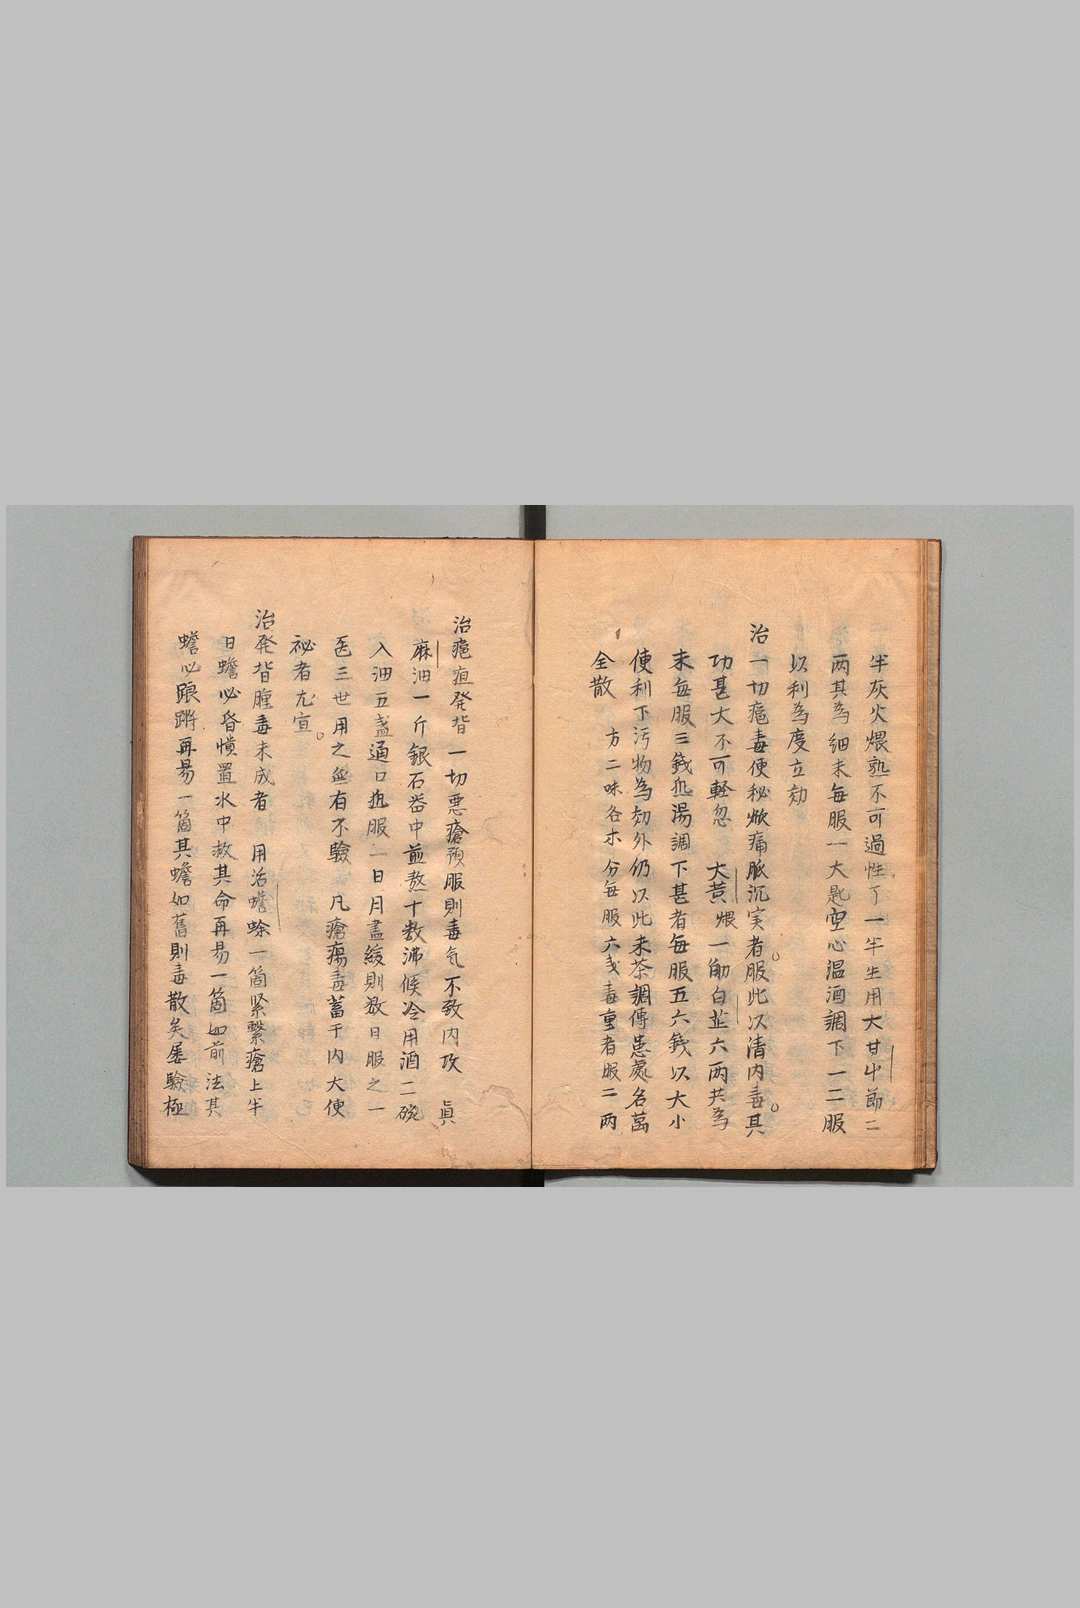 半灰火煨熟不可過性了一半生用大甘草節二
両其為細末每服一大匙空心温酒調下一二服
以利為度立効
治一切瘡毒便秘焮痛脈沉実者服此以清内毒其
功甚大不可軽忽　大黄煨一觔白芷六両共為
末每服三銭熱湯調下甚者每服五六銭以大小
便利下污物為効外仍以此末茶調傳患處名萬
全散　方二味各木分每服六戔毒重者服二両
治疽発背一切悪瘡預服則毒気不致内攻　真
麻油一斤銀石器中煎熬十数沸候冷用酒二碗
入油五盞通口熱服一日用盡緩則数日服之一
医三世用之無有不驗　凡瘡瘍毒蓄于内大便
秘者尤宜
治発背腫毒未成者　用活蟾蜍一箇緊繫瘡上半
日蟾必昏憒置水中救其命再易一箇如前法其
蟾必踉蹡再易一箇其蟾如舊則毒散矣屡驗極